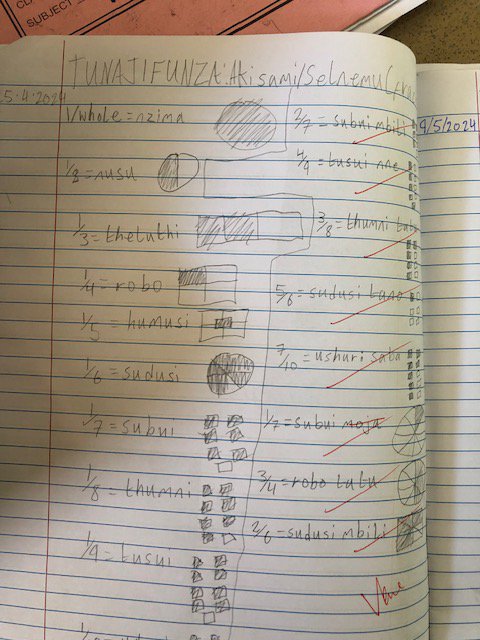 SUBJECT
TUNAJIFUNZA: Akisami/Sehemu (fra
25.4.2024
1/whole = nzima
1/2 = nusu
1/3 = theluthi
1/4 = robo
1/5 = humusi
1/6 = sudusi
1/7 = subui
1/8 = thumni
1/9 = tusui
2/7 = subui mbili
4/9 = tusui nne
3/8 = thumni tatu
5/6 = sudusi tano
7/10 = ushuri saba
1/7 = subui moja
3/4 = robo tatu
2/6 = sudusi mbili
9/5/2024